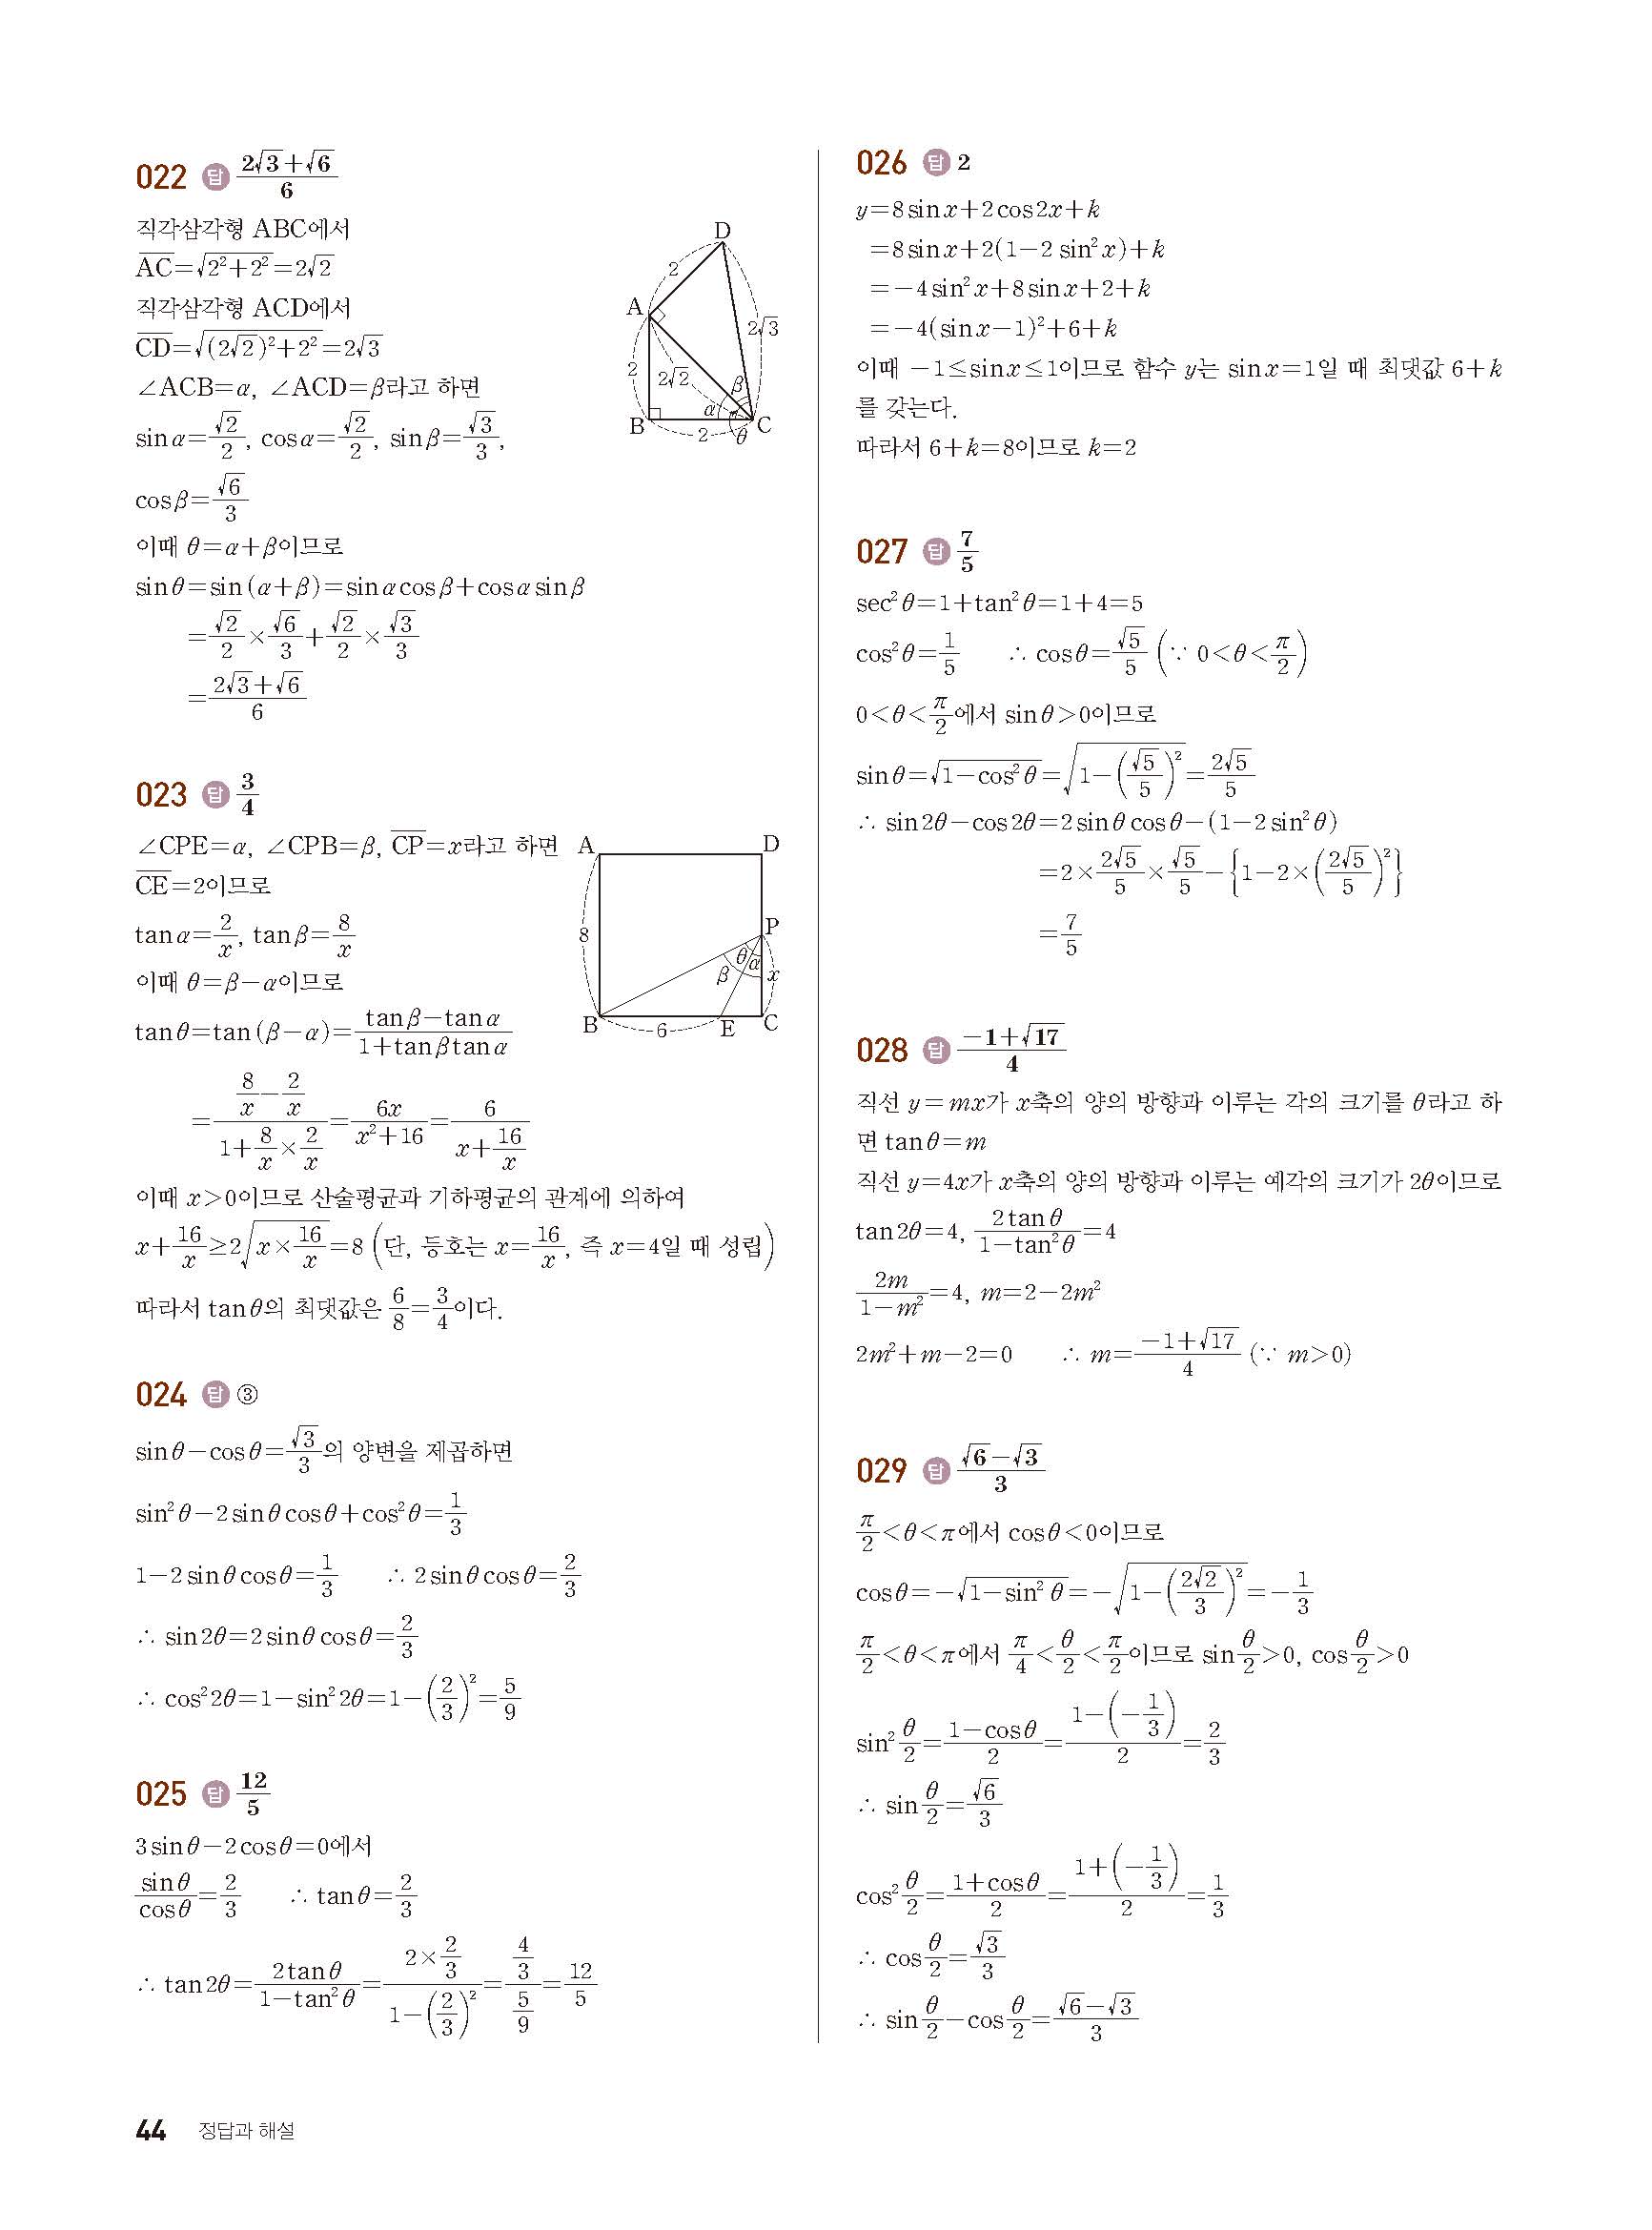 022 답 (2√3+√6)/6
직각삼각형 ABC에서
A̅C̅=√(2²+2²)=2√2
직각삼각형 ACD에서
C̅D̅=√((2√2)²+2²)=2√3
∠ACB=α, ∠ACD=β라고 하면
sin α=√2/2, cos α=√2/2, sin β=√3/3,
cos β=√6/3
이때 θ=α+β이므로
sin θ=sin (α+β)=sin α cos β+cos α sin β
=√2/2×√6/3+√2/2×√3/3
=(2√3+√6)/6
D
2
A
2√3
2
2√2
β
α
B
2
θ
C
023 답 3/4
∠CPE=α, ∠CPB=β, C̅P̅=x라고 하면
C̅E̅=2이므로
tan α=2/x, tan β=8/x
이때 θ=β-α이므로
tan θ=tan (β-α)=(tan β-tan α)/(1+tan β tan α)
=(8/x-2/x)/(1+8/x×2/x)=6x/(x²+16)=6/(x+16/x)
이때 x>0이므로 산술평균과 기하평균의 관계에 의하여
x+16/x≥2√(x×16/x)=8 (단, 등호는 x=16/x, 즉 x=4일 때 성립)
따라서 tan θ의 최댓값은 6/8=3/4이다.
A
D
8
P
θ
α
β
x
B
6
E
C
024 답 ③
sin θ-cos θ=√3/3의 양변을 제곱하면
sin² θ-2 sin θ cos θ+cos² θ=1/3
1-2 sin θ cos θ=1/3 ∴ 2 sin θ cos θ=2/3
∴ sin 2θ=2 sin θ cos θ=2/3
∴ cos² 2θ=1-sin² 2θ=1-(2/3)²=5/9
025 답 12/5
3 sin θ-2 cos θ=0에서
sin θ/cos θ=2/3 ∴ tan θ=2/3
∴ tan 2θ=2 tan θ/(1-tan² θ)=(2×2/3)/(1-(2/3)²)=(4/3)/(5/9)=12/5
026 답 2
y=8 sin x+2 cos 2x+k
=8 sin x+2(1-2 sin² x)+k
=-4 sin² x+8 sin x+2+k
=-4(sin x-1)²+6+k
이때 -1≤sin x≤1이므로 함수 y는 sin x=1일 때 최댓값 6+k
를 갖는다.
따라서 6+k=8이므로 k=2
027 답 7/5
sec² θ=1+tan² θ=1+4=5
cos² θ=1/5 ∴ cos θ=√5/5 (∵ 0<θ<π/2)
0<θ<π/2에서 sin θ>0이므로
sin θ=√(1-cos² θ)=√(1-(√5/5)²)=2√5/5
∴ sin 2θ-cos 2θ=2 sin θ cos θ-(1-2 sin² θ)
=2×2√5/5×√5/5-{1-2×(2√5/5)²}
=7/5
028 답 (-1+√17)/4
직선 y=mx가 x축의 양의 방향과 이루는 각의 크기를 θ라고 하
면 tan θ=m
직선 y=4x가 x축의 양의 방향과 이루는 예각의 크기가 2θ이므로
tan 2θ=4, 2 tan θ/(1-tan² θ)=4
2m/(1-m²)=4, m=2-2m²
2m²+m-2=0 ∴ m=(-1+√17)/4 (∵ m>0)
029 답 (√6-√3)/3
π/2<θ<π에서 cos θ<0이므로
cos θ=-√(1-sin² θ)=-√(1-(2√2/3)²)=-1/3
π/2<θ<π에서 π/4<θ/2<π/2이므로 sin θ/2>0, cos θ/2>0
sin² θ/2=(1-cos θ)/2=(1-(-1/3))/2=2/3
∴ sin θ/2=√6/3
cos² θ/2=(1+cos θ)/2=(1+(-1/3))/2=1/3
∴ cos θ/2=√3/3
∴ sin θ/2-cos θ/2=(√6-√3)/3
44 정답과 해설